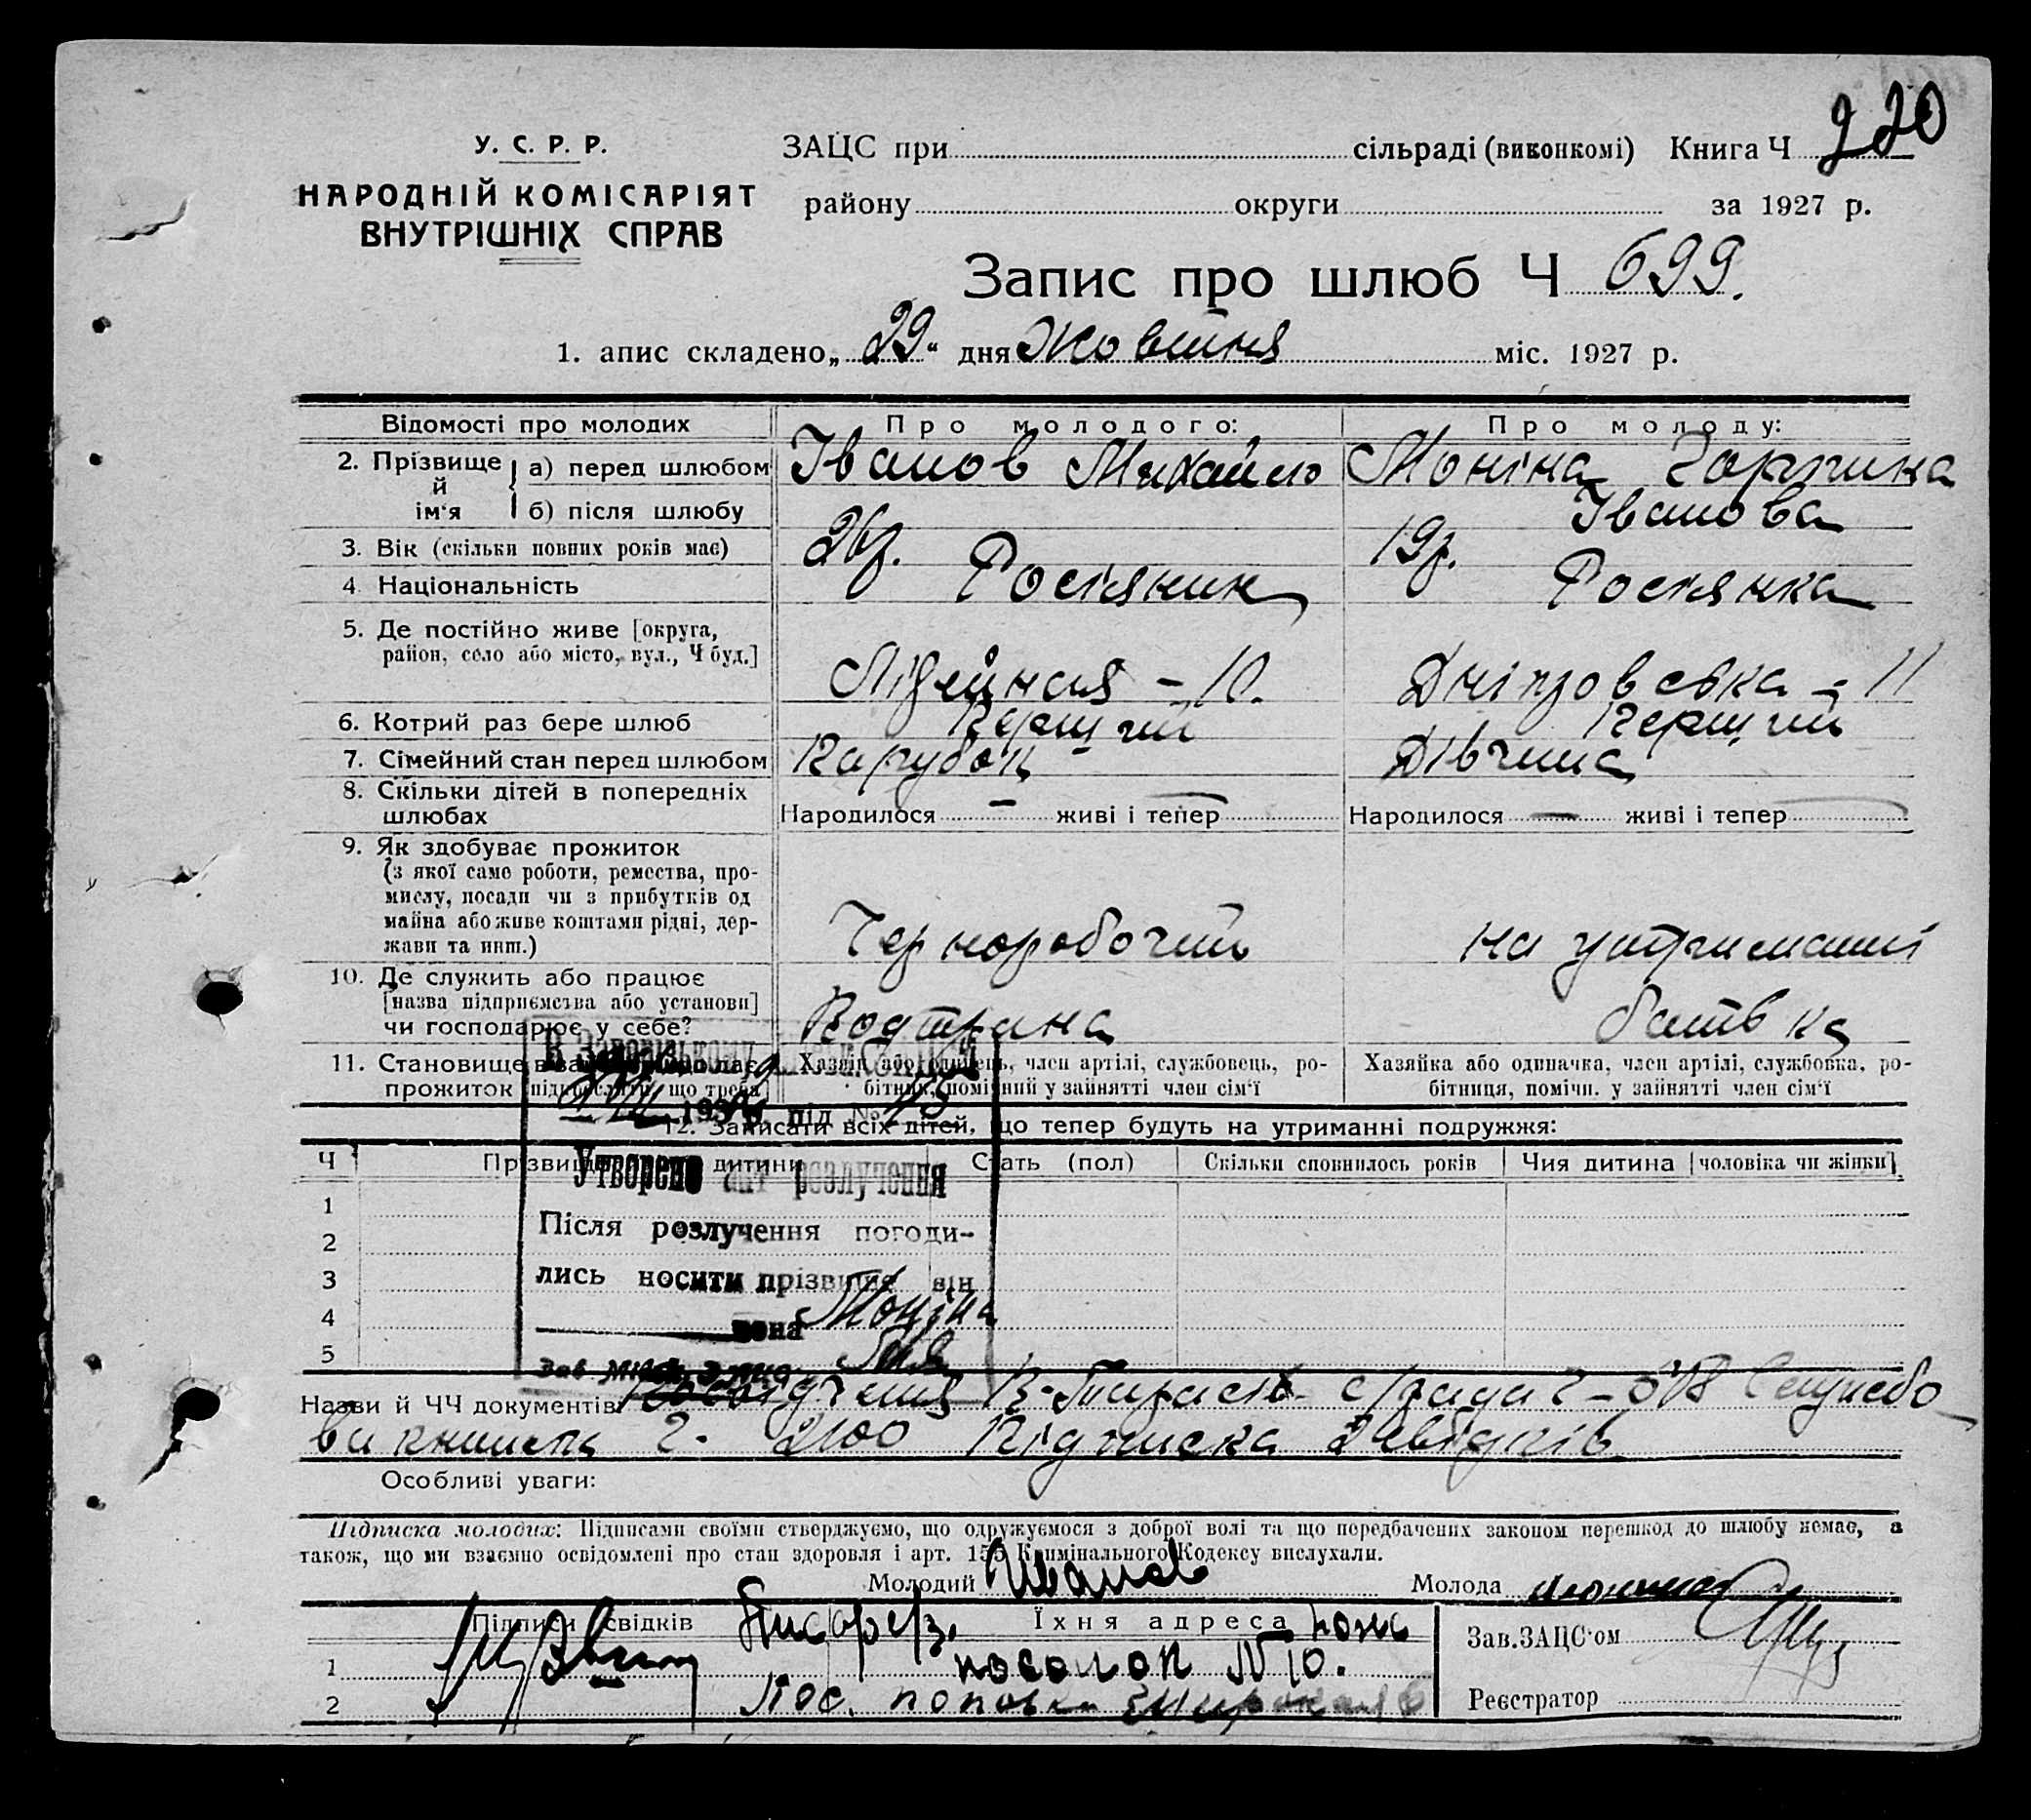 220
У. С. Р. Р.
НАРОДНІЙ КОМІСАРІЯТ
ВНУТРІШНІХ СПРАВ
ЗАЦС при сільраді (виконкомі) Книга Ч
району округи за 1927 р.
Запис про шлюб Ч 699.
1. апис складено „ 29 “ дня Жовтня міс. 1927 р.
Відомості про молодих Про молодого: Про молоду:
2. Прізвище й ім‘я а) перед шлюбом Іванов Михайло Моніна Горпина
б) після шлюбу Іванова
3. Вік (скільки повних років має) 26р. 19р.
4. Національність Росіянин Росіянка
5. Де постійно живе [округа,
район, село або місто, вул., Ч буд.] Лівейная - 10. Дніпровська - 11
6. Котрий раз бере шлюб Перший Перший
7. Сімейний стан перед шлюбом Парубок Дівчина
8. Скільки дітей в попередніх
шлюбах Народилося — живі і тепер — Народилося — живі і тепер —
9. Як здобуває прожиток
(з якої саме роботи, ремества, про-
мислу, посади чи з прибутків од
майна або живе коштами рідні, дер-
жави та инш.) Чорноробочий на утриманні
10. Де служить або працює
[назва підприємства або установи]
чи господарює у себе? батька
11. Становище в
прожиток Хазяїн або одинець, член артілі, службовець, ро-
бітник, помічний у зайнятті член сім‘ї
Хазяйка або одиначка, член артілі, службовка, ро-
бітниця, помічн. у зайнятті член сім‘ї
193 під №
12. Записати всіх дітей, що тепер будуть на утриманні подружжя:
Ч Прізвище дитини Стать (пол) Скільки сповнилось років Чия дитина [чоловіка чи жінки]
1
2
3
4
5
Утворено акт розлучення
Після розлучення погоди-
лись носити прізвище він
вона Моніна
Зав.
Назви й ЧЧ документів: Посвідчення
2100 Підписка
Особливі уваги:
Підписка молодих: Підписами своїми стверджуємо, що одружуємося з доброї волі та що передбачених законом перешкод до шлюбу немає, а
також, що ми взаємно освідомлені про стан здоровля і арт. 155 Кримінального Кодексу вислухали.
Молодий Иванов Молода Монина
Підписи свідків Їхня адреса
1 посолок N 10.
2 Пос. поповка
Зав. ЗАЦС‘ом
Реєстратор